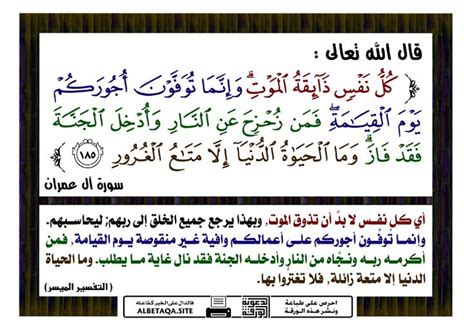 قال الله تعالى :
﴿ كُلُّ نَفْسٍ ذَآئِقَةُ ٱلْمَوْتِۗ وَإِنَّمَا تُوَفَّوْنَ أُجُورَكُمْ
يَوْمَ ٱلْقِيَـٰمَةِۖ فَمَن زُحْزِحَ عَنِ ٱلنَّارِ وَأُدْخِلَ ٱلْجَنَّةَ
فَقَدْ فَازَۗ وَمَا ٱلْحَيَوٰةُ ٱلدُّنْيَآ إِلَّا مَتَـٰعُ ٱلْغُرُورِ ١٨٥ ﴾
سورة آل عمران
أي كل نفس لا بدَّ أن تذوق الموت، وبهذا يرجع جميع الخلق إلى ربهم؛ ليحاسبهم.
وإنما توفَّون أجوركم على أعمالكم وافية غير منقوصة يوم القيامة، فمن
أكرمه ربه ونجَّاه من النار وأدخله الجنة فقد نال غاية ما يطلب. وما الحياة
الدنيا إلا متعة زائلة، فلا تغترُّوا بها.
(التفسير الميسر)
احرص على طباعة
ونشر هذه الورقة
دعوية
ورقة
فالدال على الخير كفاعله
ALBETAQA.SITE